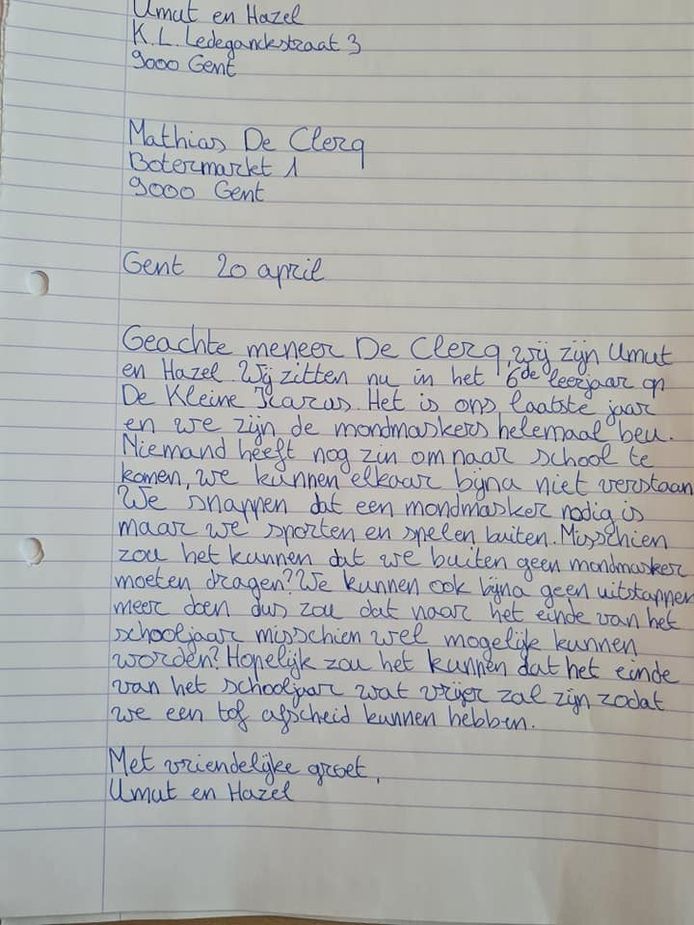 Umut en Hazel
K.L. Ledeganckstraat 3
9000 Gent
Mathias De Clerq
Botermarkt 1
9000 Gent
Gent 20 april
Geachte meneer De Clerq, wij zijn Umut
en Hazel. Wij zitten nu in het 6de leerjaar op
De Kleine Icarus. Het is ons laatste jaar
en we zijn de mondmaskers helemaal beu.
Niemand heeft nog zin om naar school te
komen, we kunnen elkaar bijna niet verstaan
We snappen dat een mondmasker nodig is
maar we sporten en spelen buiten. Misschien
zou het kunnen dat we buiten geen mondmasker
moeten dragen? We kunnen ook bijna geen uitstappen
meer doen dus zou dat naar het einde van het
schooljaar misschien wel mogelijk kunnen
worden? Hopelijk zou het kunnen dat het einde
van het schooljaar wat vrijer zal zijn zodat
we een tof afscheid kunnen hebben.
Met vriendelijke groet,
Umut en Hazel